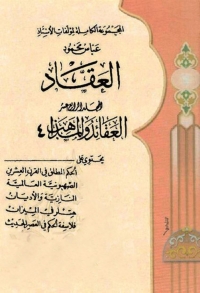 المجموعة الكاملة لمؤلفات الأستاذ
عباس محمود
العقاد
المجلد الرابع عشر
العقائد والمذاهب ٤
يحتوي على
الحكم المطلق في القرن العشرين
الصهيونية العالمية
النازية والأديان
هتلر في الميزان
فلاسفة الحكم في العصر الحديث